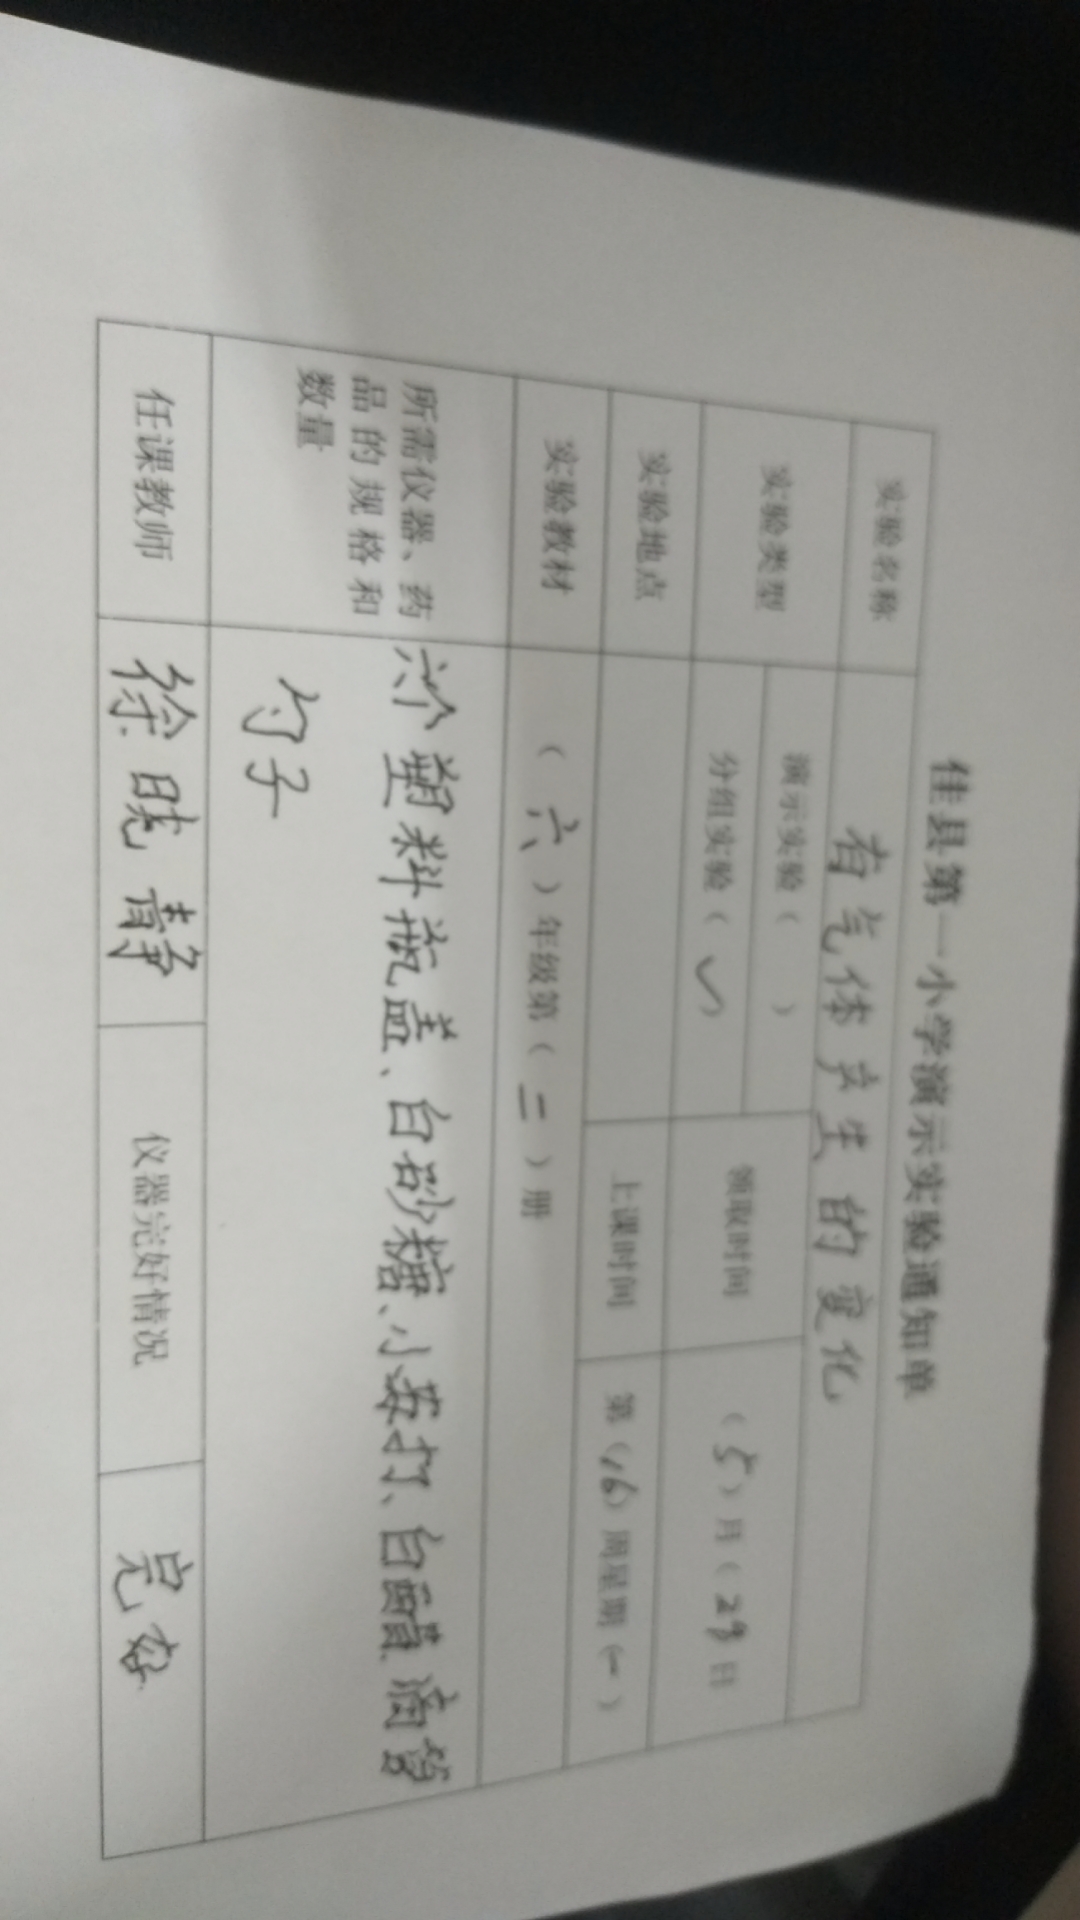 佳县第一小学演示实验通知单
实验名称 有气体产生的变化
实验类型 演示实验（ ） 领取时间 （5）月（29日
分组实验（✓）
实验地点 上课时间 第（16）周星期（一）
实验教材 （六）年级第（二）册
所需仪器、药品的规格和数量 六个塑料瓶盖、白砂糖、小苏打、白醋滴管
勺子
任课教师 徐晓静 仪器完好情况 完好